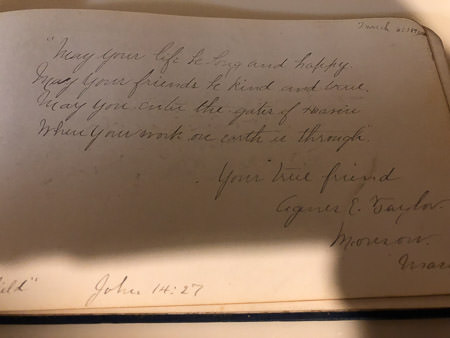 "May your life be long and happy.
May Your friends be kind and true.
May you enter the gates of Heaven
When Your work on earth is through.
Your true friend
Agnes E. Taylor.
John 14:27